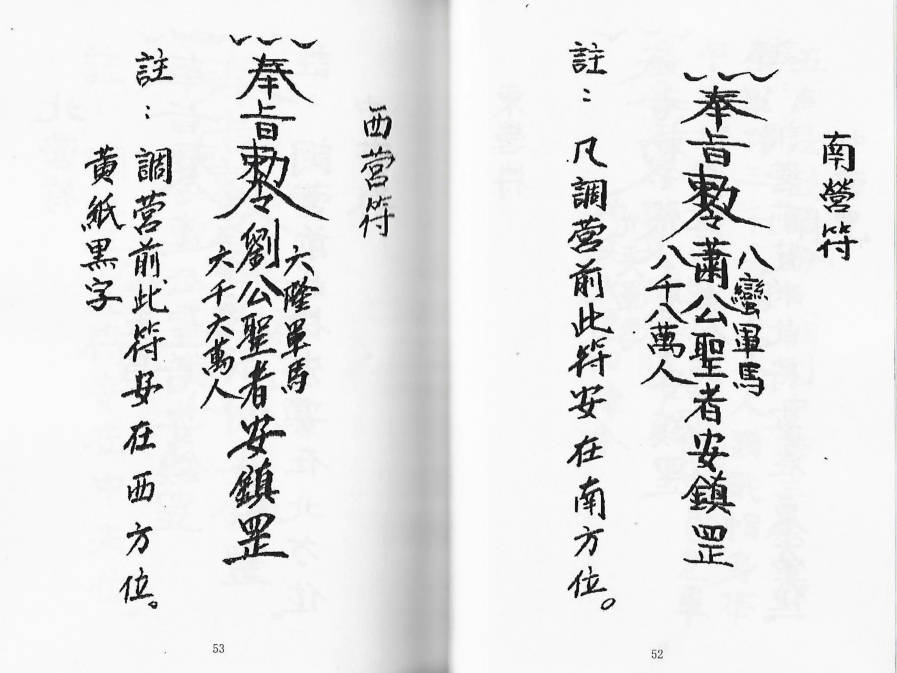 南營符
八蠻軍馬
奉旨勅令蕭公聖者安鎮罡
八千八萬人
註：凡調营前此符安在南方位。
52
西营符
六隆軍馬
奉旨勅令劉公聖者安鎮罡
六千六萬人
註：調营前此符安在西方位。
黄紙黑字
53